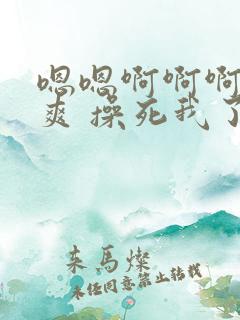 嗯嗯啊啊啊
爽 操死我了
来马灿
未经同意禁止转载